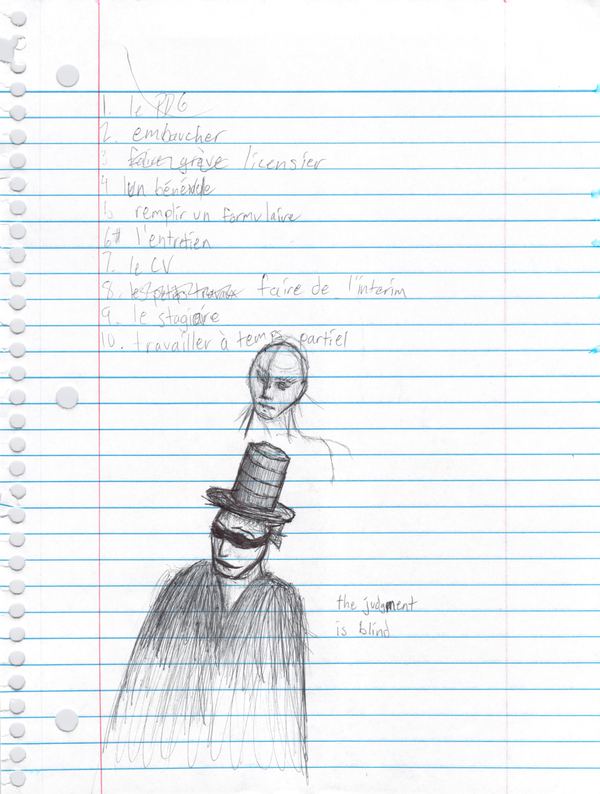 1. le PDG
2. embaucher
3 faire grève licensier
4 un bénévole
5 remplir un formulaire
6 l'entretien
7. le CV
8. les petits travaux faire de l'interim
9. le stagiaire
10. travailler à temps partiel
the judgment
is blind